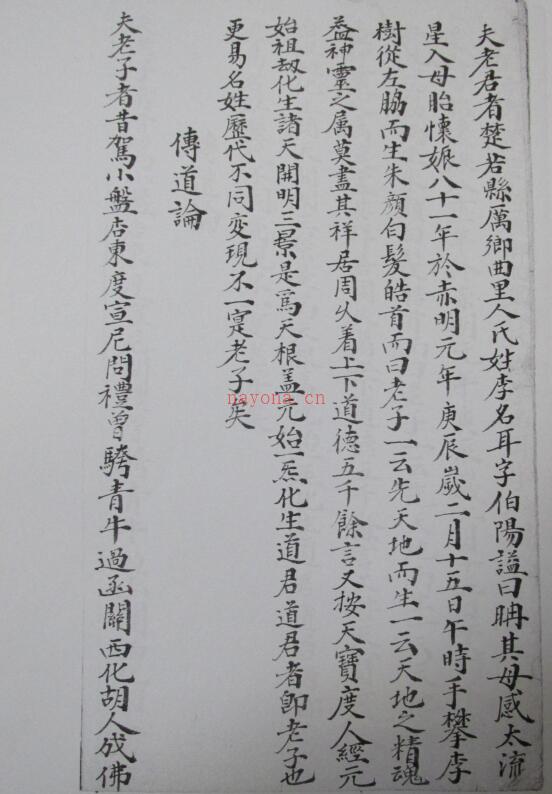 夫老君者楚苦縣厲鄉曲里人氏姓李名耳字伯陽謚曰聃其母感太流
星入母胎懷娠八十一年於赤明元年庚辰歲二月十五日午時手攀李
樹從左脇而生朱顏白髮皓首而曰老子一云先天地而生一云天地之精魂
益神靈之属莫盡其祥居周久着上下道德五千餘言又按天寶度人經元
始祖劫化生諸天開明三景是爲天根盖元始一炁化生道君道君者即老子也
更易名姓歷代不同変現不一寔老子矣
傳道論
夫老子者昔駕小盤店東度宣尼問禮曾騎青牛過函關西化胡人成佛
nayona.cn